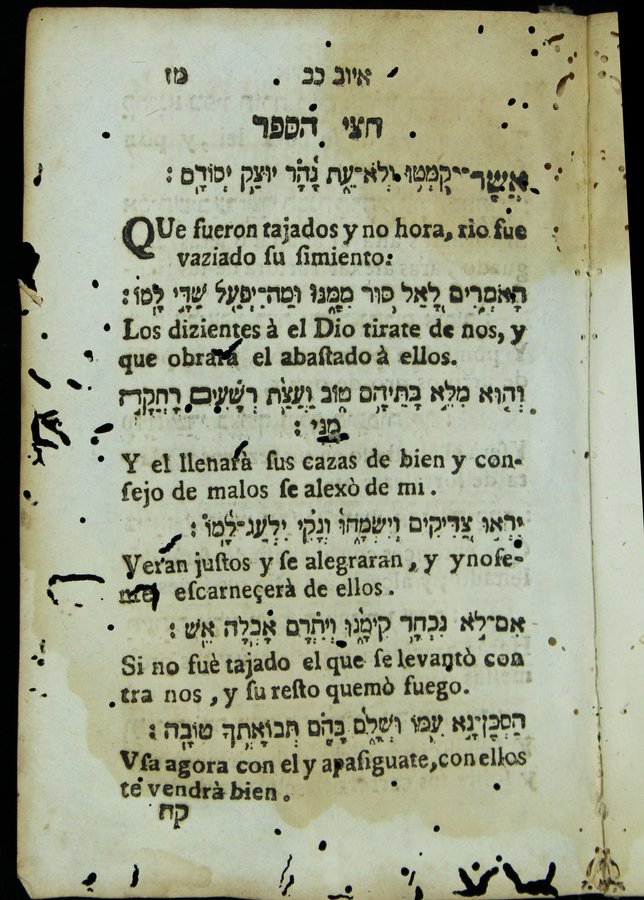 איוב כב מז
חצי הספר
אֲשֶֽׁר־קֻמְּט֥וּ וְלֹא־עֵ֑ת נָ֝הָ֗ר יוּצַ֥ק יְסוֹדָֽם׃
QUe fueron tajados y no hora, rio fue
vaziado ſu ſimiento:
הָאֹמְרִ֣ים לָ֭אֵל ס֣וּר מִמֶּ֑נּוּ וּמַה־יִּפְעַ֖ל שַׁדַּ֣י לָֽמוֹ׃
Los dizientes à el Dio tirate de nos, y
que obrarà el abaſtado à ellos.
וְה֤וּא מִלֵּ֣א בָתֵּיהֶ֣ם ט֑וֹב וַעֲצַ֥ת רְ֝שָׁעִ֗ים רָ֣חֲקָה
מֶֽנִּי׃
Y el llenarà ſus cazas de bien y con-
ſejo de malos ſe alexò de mi.
יִרְא֣וּ צַדִּיקִ֣ים וְיִשְׂמָ֑חוּ וְ֝נָקִ֗י יִלְעַג־לָֽמוֹ׃
Veran juſtos y ſe alegraran, y ynoſe-
eſcarneçerà de ellos.
אִם־לֹ֣א נִכְחַ֣ד קִימָ֑נוּ וְ֝יִתְרָ֗ם אָ֣כְלָה אֵֽשׁ׃
Si no fuè tajado el que ſe levantò con
tra nos, y ſu reſto quemò fuego.
הַסְכֶּן־נָ֣א עִמּ֑וֹ וּשְׁלָ֑ם בָּ֝הֶ֗ם תְּֽבוֹאַתְךָ֥ טוֹבָֽה׃
Vſa agora con el y apaſiguate, con ellos
te vendrà bien.
קח